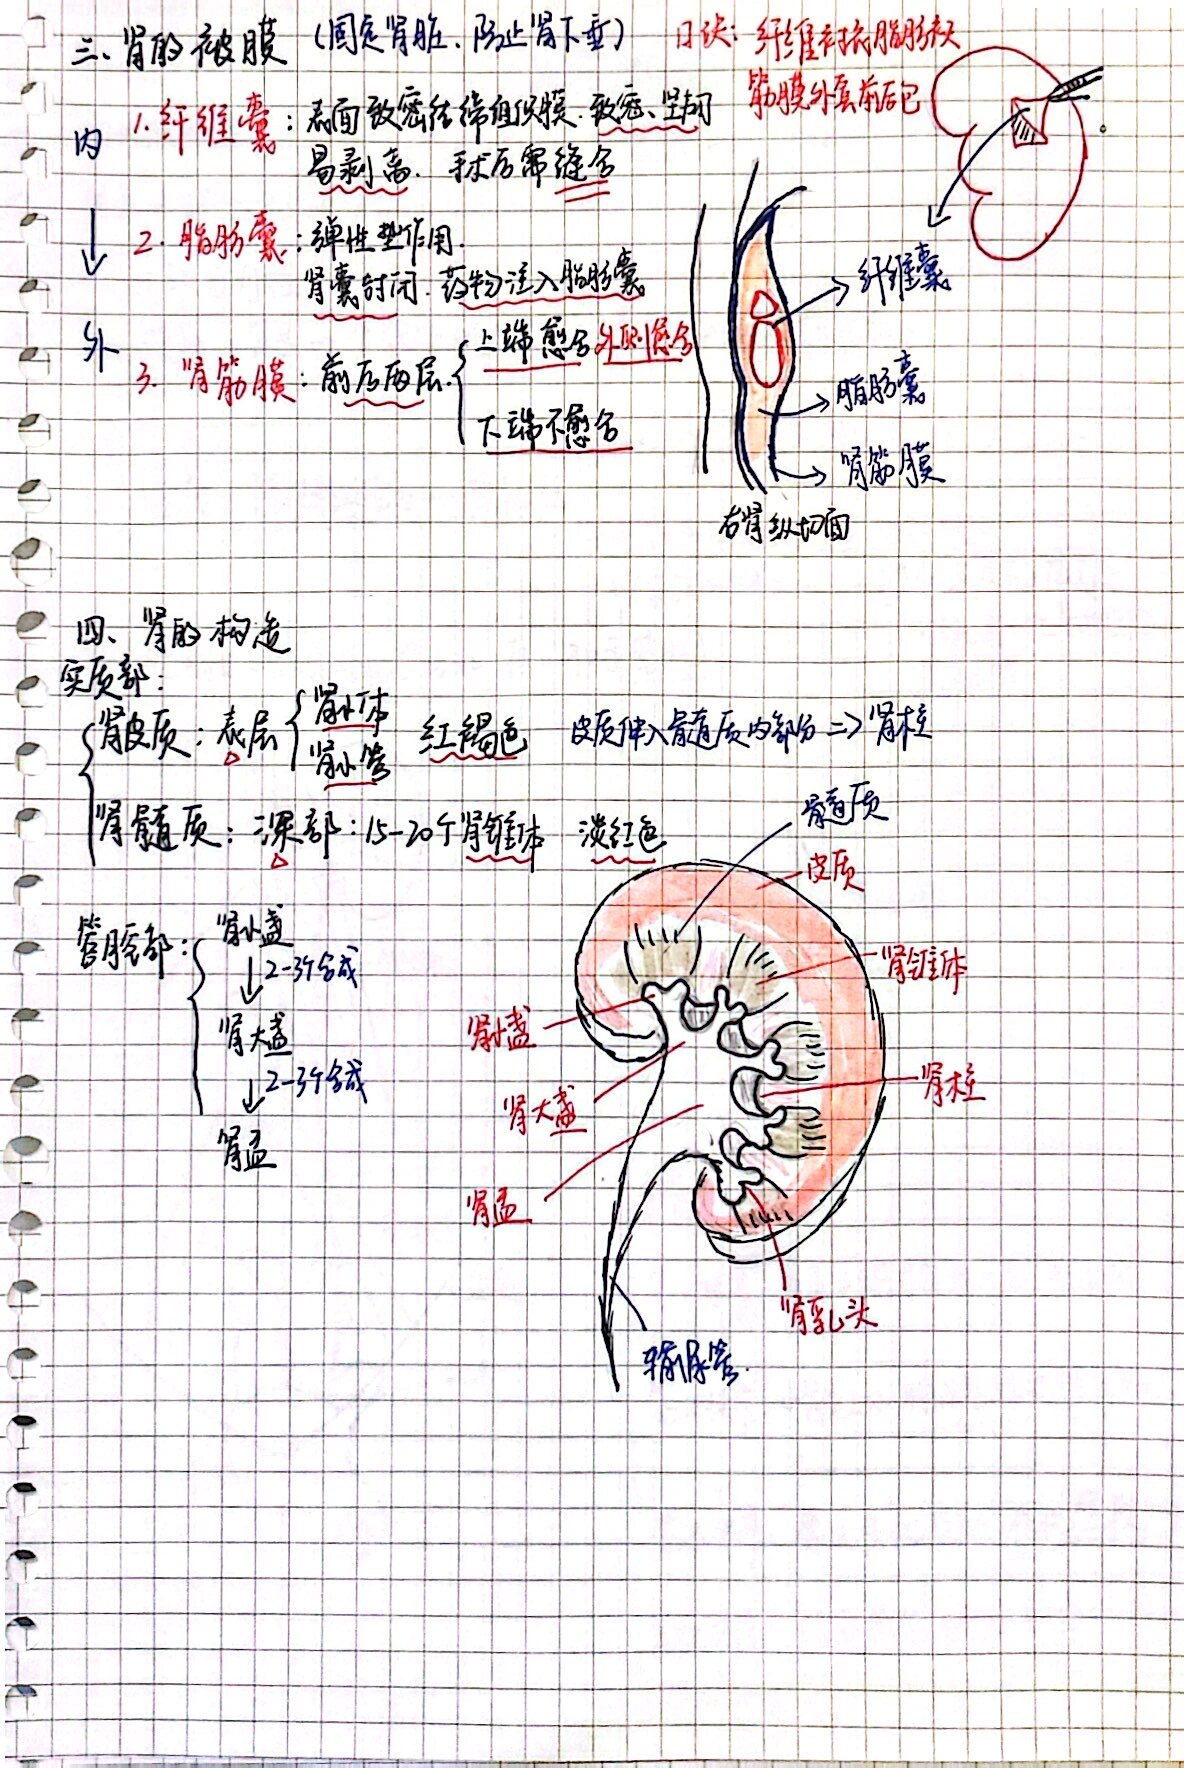 三、肾的被膜 (固定肾脏、防止肾下垂) 口诀: 纤维衬衣脂肪袄
筋膜外套前后包
内
↓
外
1. 纤维囊: 表面致密结缔组织膜. 致密、坚韧
易剥离. 手术后需缝合
2. 脂肪囊: 弹性垫作用.
肾囊封闭. 药物注入脂肪囊
3. 肾筋膜: 前后两层.
上端愈合 外侧愈合
下端不愈合
纤维囊
脂肪囊
肾筋膜
右肾纵切面
四、肾的构造
实质部:
肾皮质: 表层 肾小体
肾小管
红褐色 皮质伸入髓质内部分 => 肾柱
肾髓质: 深部: 15-20个肾锥体 淡红色
管腔部: 肾小盏
↓ 2-3个合成
肾大盏
↓ 2-3个合成
肾盂
髓质
皮质
肾锥体
肾小盏
肾大盏
肾柱
肾盂
肾乳头
输尿管.